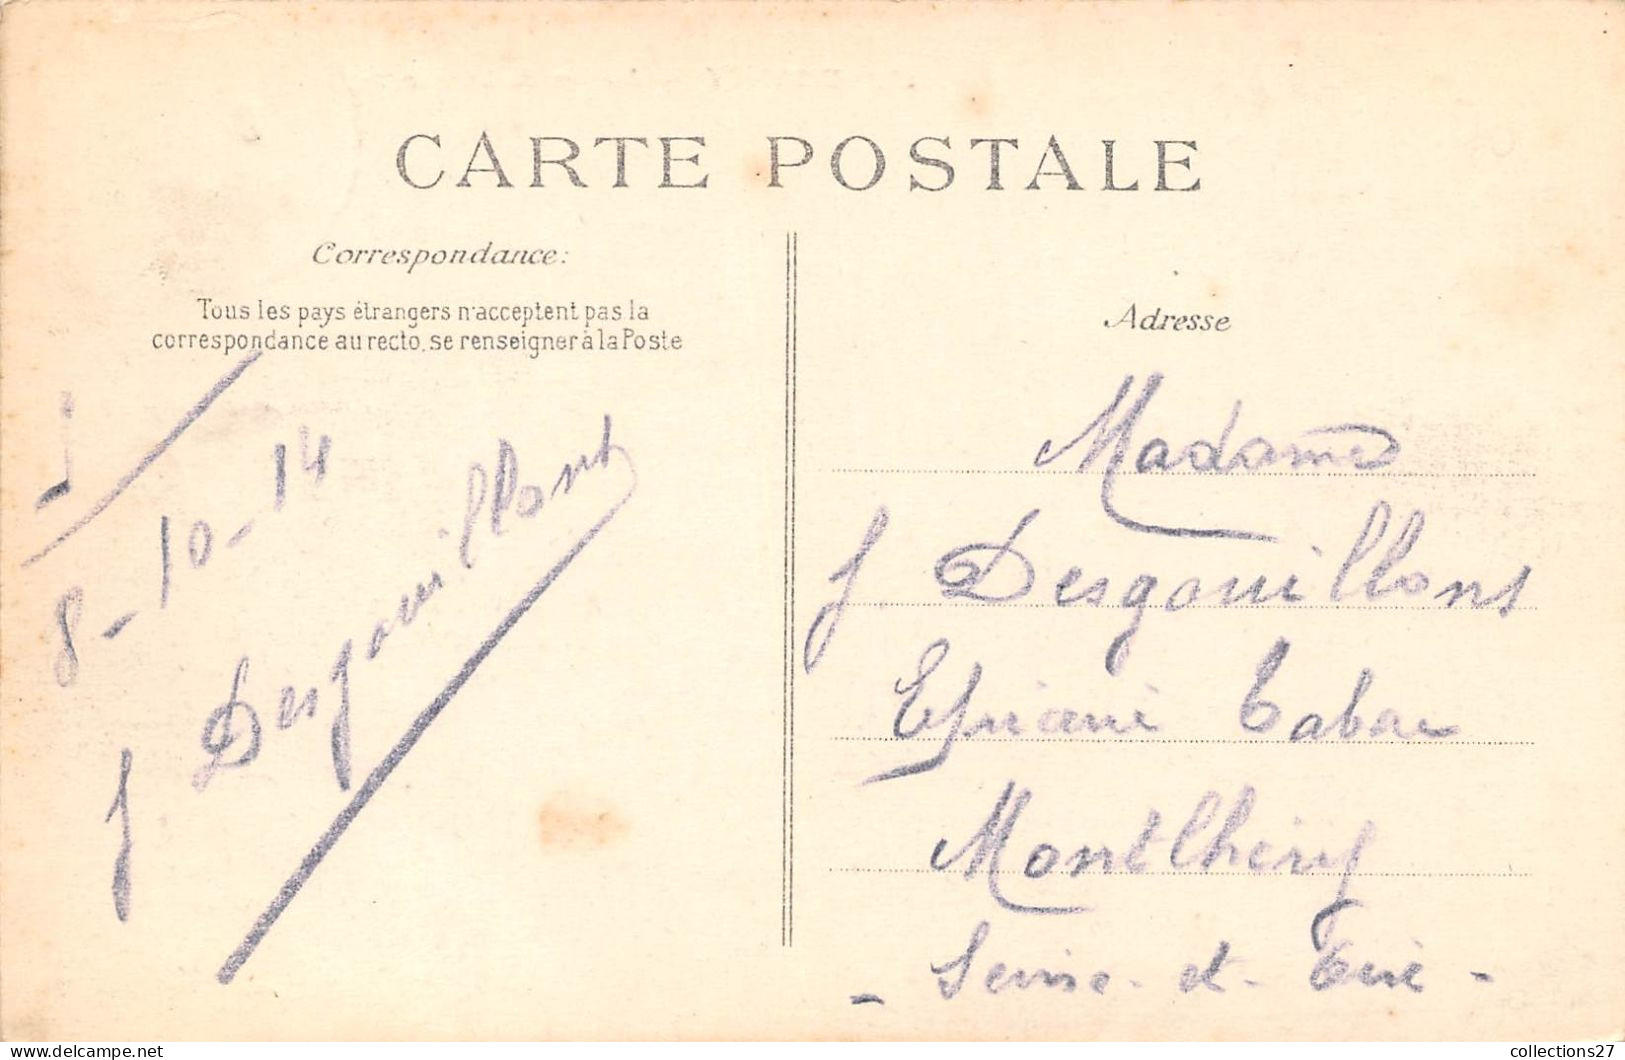 CARTE POSTALE
Correspondance:
Tous les pays étrangers n'acceptent pas la
correspondance au recto, se renseigner à la Poste
8-10-14
J. Desgouillons
Adresse
Madame
J. Desgouillons
Tabac
Montlhéry
- Seine-et-Oise -
collections27